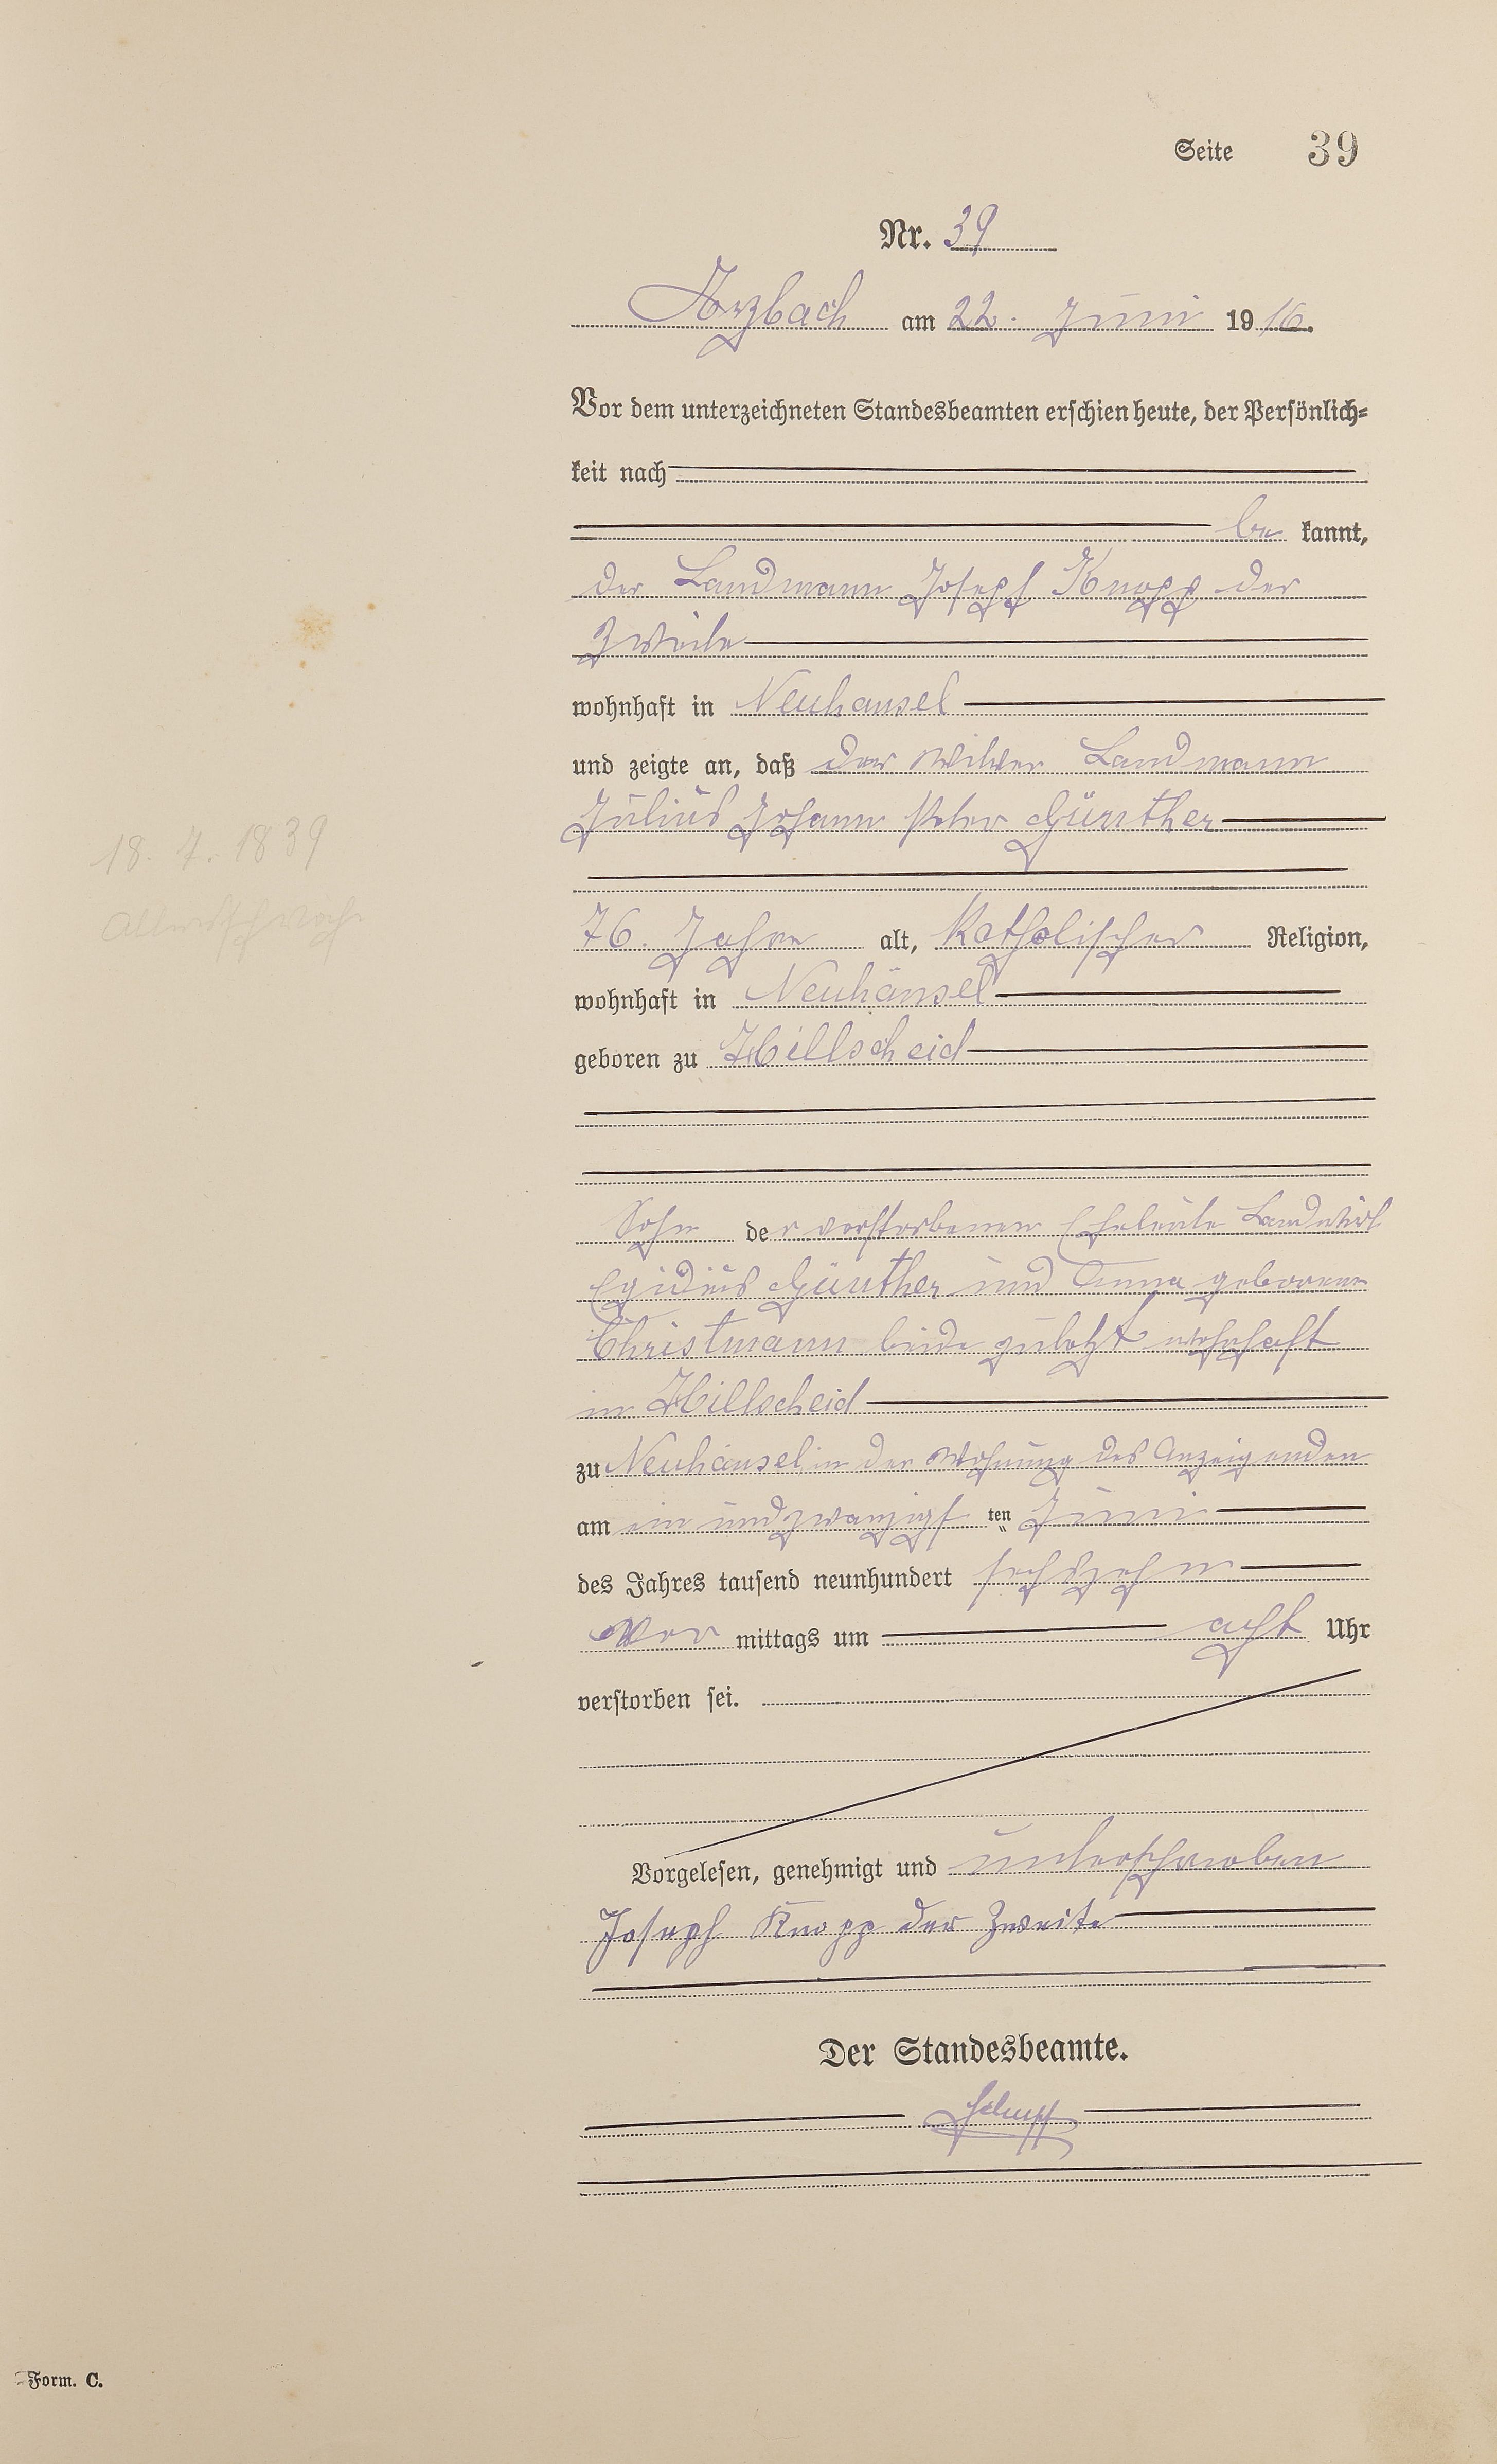 Seite 39
Nr. 39
Arzbach am 22. Juni 1916.
Vor dem unterzeichneten Standesbeamten erschien heute, der Persönlich=
keit nach
be kannt,
der Landmann Joseph Knopp der
Zweite
wohnhaft in Neuhäusel
und zeigte an, daß der Witwer Landmann
Julius Johann Peter Günther
18. 7. 1839
Altersschwäche
76. Jahre alt, Katholischer Religion,
wohnhaft in Neuhäusel
geboren zu Hillscheid
Sohn der verstorbenen Eheleute Landwirt
Egidius Günther und Anna geborene
Christmann beide zuletzt wohnhaft
in Hillscheid
zu Neuhäusel, in der Wohnung des Anzeigenden
am ein und zwanzigsten Juni
des Jahres tausend neunhundert sechszehn
Vor mittags um acht Uhr
verstorben sei.
Vorgelesen, genehmigt und unterschrieben
Joseph Knopp der Zweite
Der Standesbeamte.
Form. C.